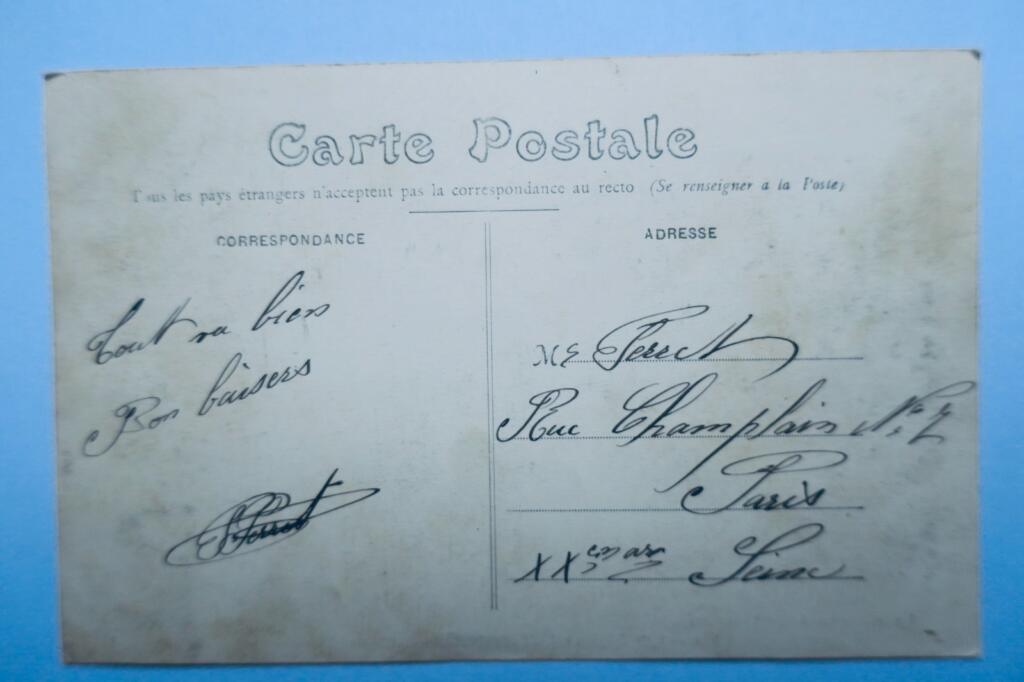 Carte Postale
Tous les pays étrangers n'acceptent pas la correspondance au recto (Se renseigner à la Poste)
CORRESPONDANCE
ADRESSE
Tout va bien
Bon baisers
Perret
M Perret
Rue Champlain No
Paris
XXem ar Seine